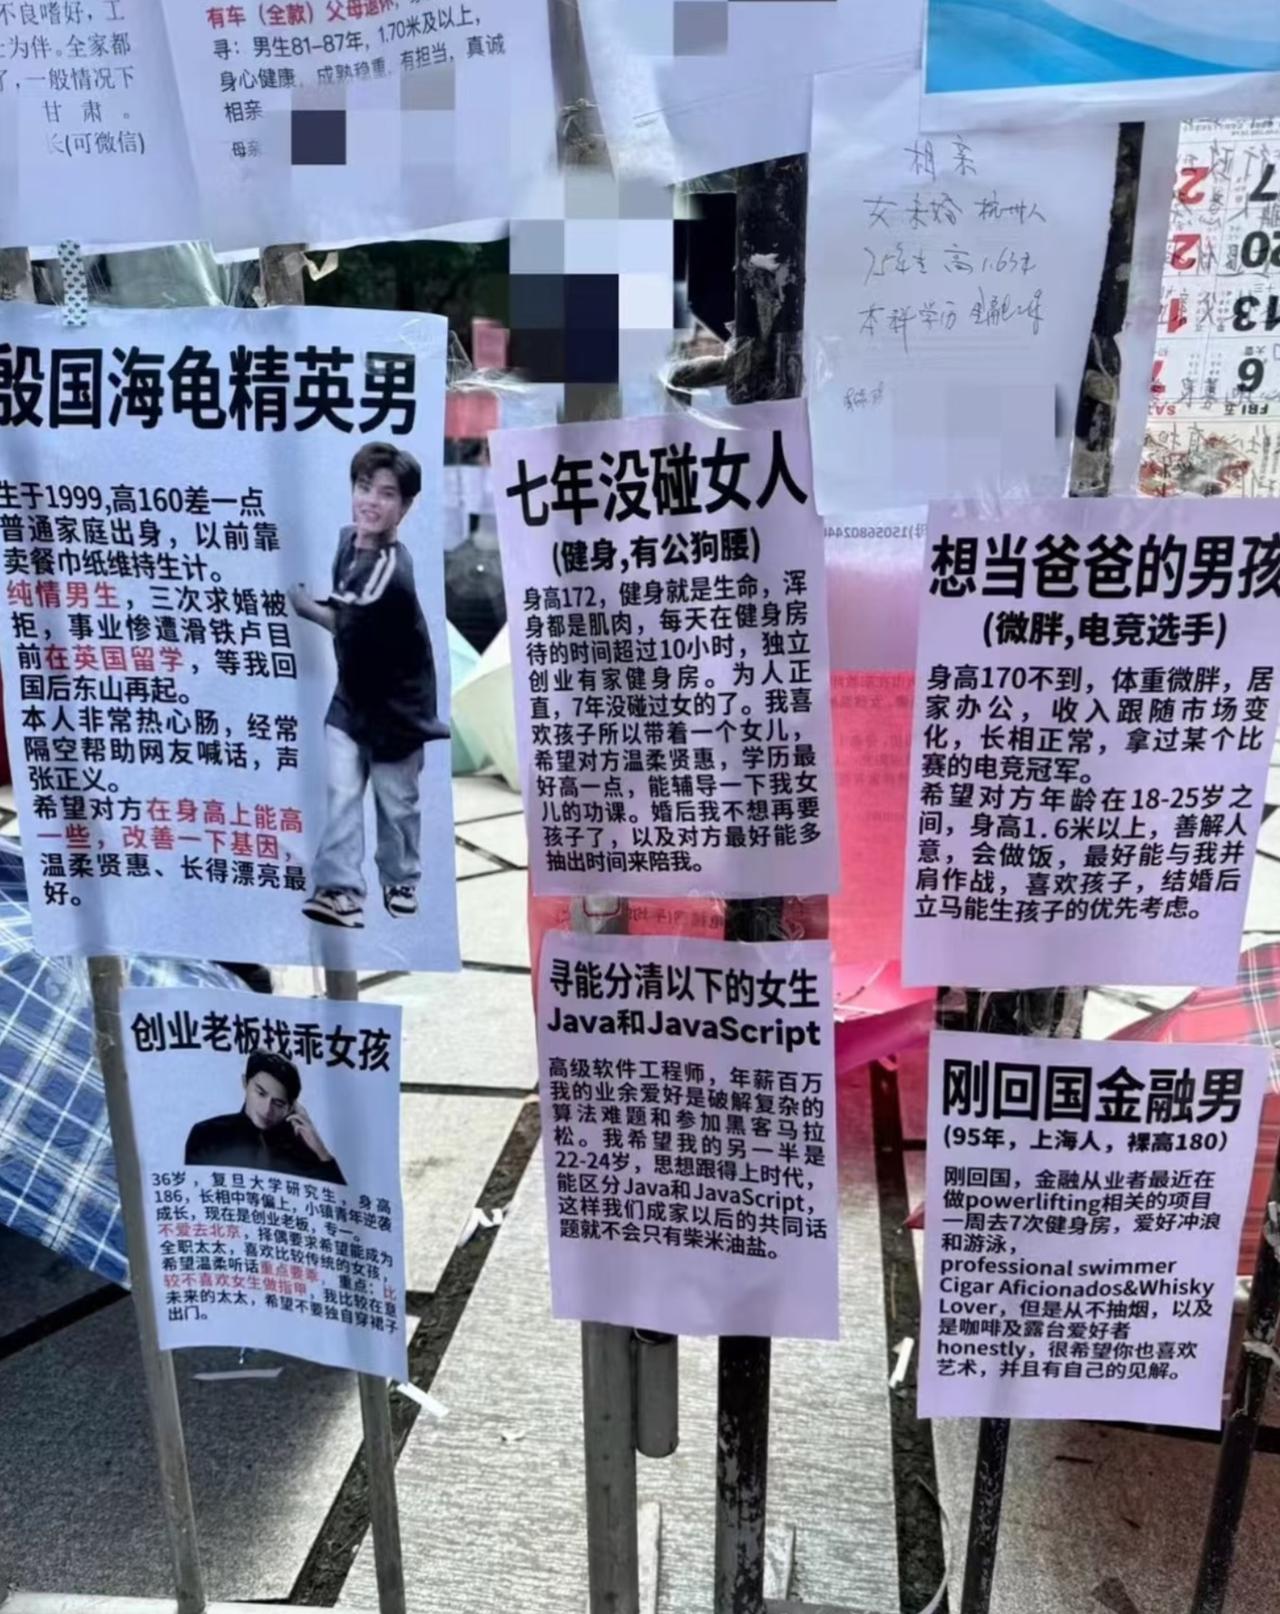 不良嗜好，工
为伴。全家都
了，一般情况下
甘肃。
长(可微信)
有车（全款）父母退休，
寻：男生81-87年，1.70米及以上，
身心健康，成熟稳重，有担当，真诚
相亲
母亲
相亲
女 未婚 杭州人
75年生 高1.63米
本科学历 金融工作
殷国海龟精英男
生于1999,高160差一点
普通家庭出身，以前靠
卖餐巾纸维持生计。
纯情男生，三次求婚被
拒，事业惨遭滑铁卢目
前在英国留学，等我回
国后东山再起。
本人非常热心肠，经常
隔空帮助网友喊话，声
张正义。
希望对方在身高上能高
一些，改善一下基因，
温柔贤惠、长得漂亮最
好。
七年没碰女人
(健身,有公狗腰)
身高172，健身就是生命，浑
身都是肌肉，每天在健身房
待的时间超过10小时，独立
创业有家健身房。为人正
直，7年没碰过女的了。我喜
欢孩子所以带着一个女儿，
希望对方温柔贤惠，学历最
好高一点，能辅导一下我女
儿的功课。婚后我不想再要
孩子了，以及对方最好能多
抽出时间来陪我。
想当爸爸的男孩
(微胖,电竞选手)
身高170不到，体重微胖，居
家办公，收入跟随市场变
化，长相正常，拿过某个比
赛的电竞冠军。
希望对方年龄在18-25岁之
间，身高1.6米以上，善解人
意，会做饭，最好能与我并
肩作战，喜欢孩子，结婚后
立马能生孩子的优先考虑。
创业老板找乖女孩
36岁，复旦大学研究生，身高
186，长相中等偏上，小镇青年逆袭
成长，现在是创业老板，专一。
不爱去北京，择偶要求希望能成为
全职太太，喜欢比较传统的女孩，
希望温柔听话重点要乖，重点：比
较不喜欢女生做指甲，我比较在意
未来的太太，希望不要独自穿裙子
出门。
寻能分清以下的女生
Java和JavaScript
高级软件工程师，年薪百万
我的业余爱好是破解复杂的
算法难题和参加黑客马拉
松。我希望我的另一半是
22-24岁，思想跟得上时代，
能区分Java和JavaScript，
这样我们成家以后的共同话
题就不会只有柴米油盐。
刚回国金融男
(95年，上海人，裸高180)
刚回国，金融从业者最近在
做powerlifting相关的项目
一周去7次健身房，爱好冲浪
和游泳，
professional swimmer
Cigar Aficionados&Whisky
Lover，但是从不抽烟，以及
是咖啡及露台爱好者
honestly，很希望你也喜欢
艺术，并且有自己的见解。